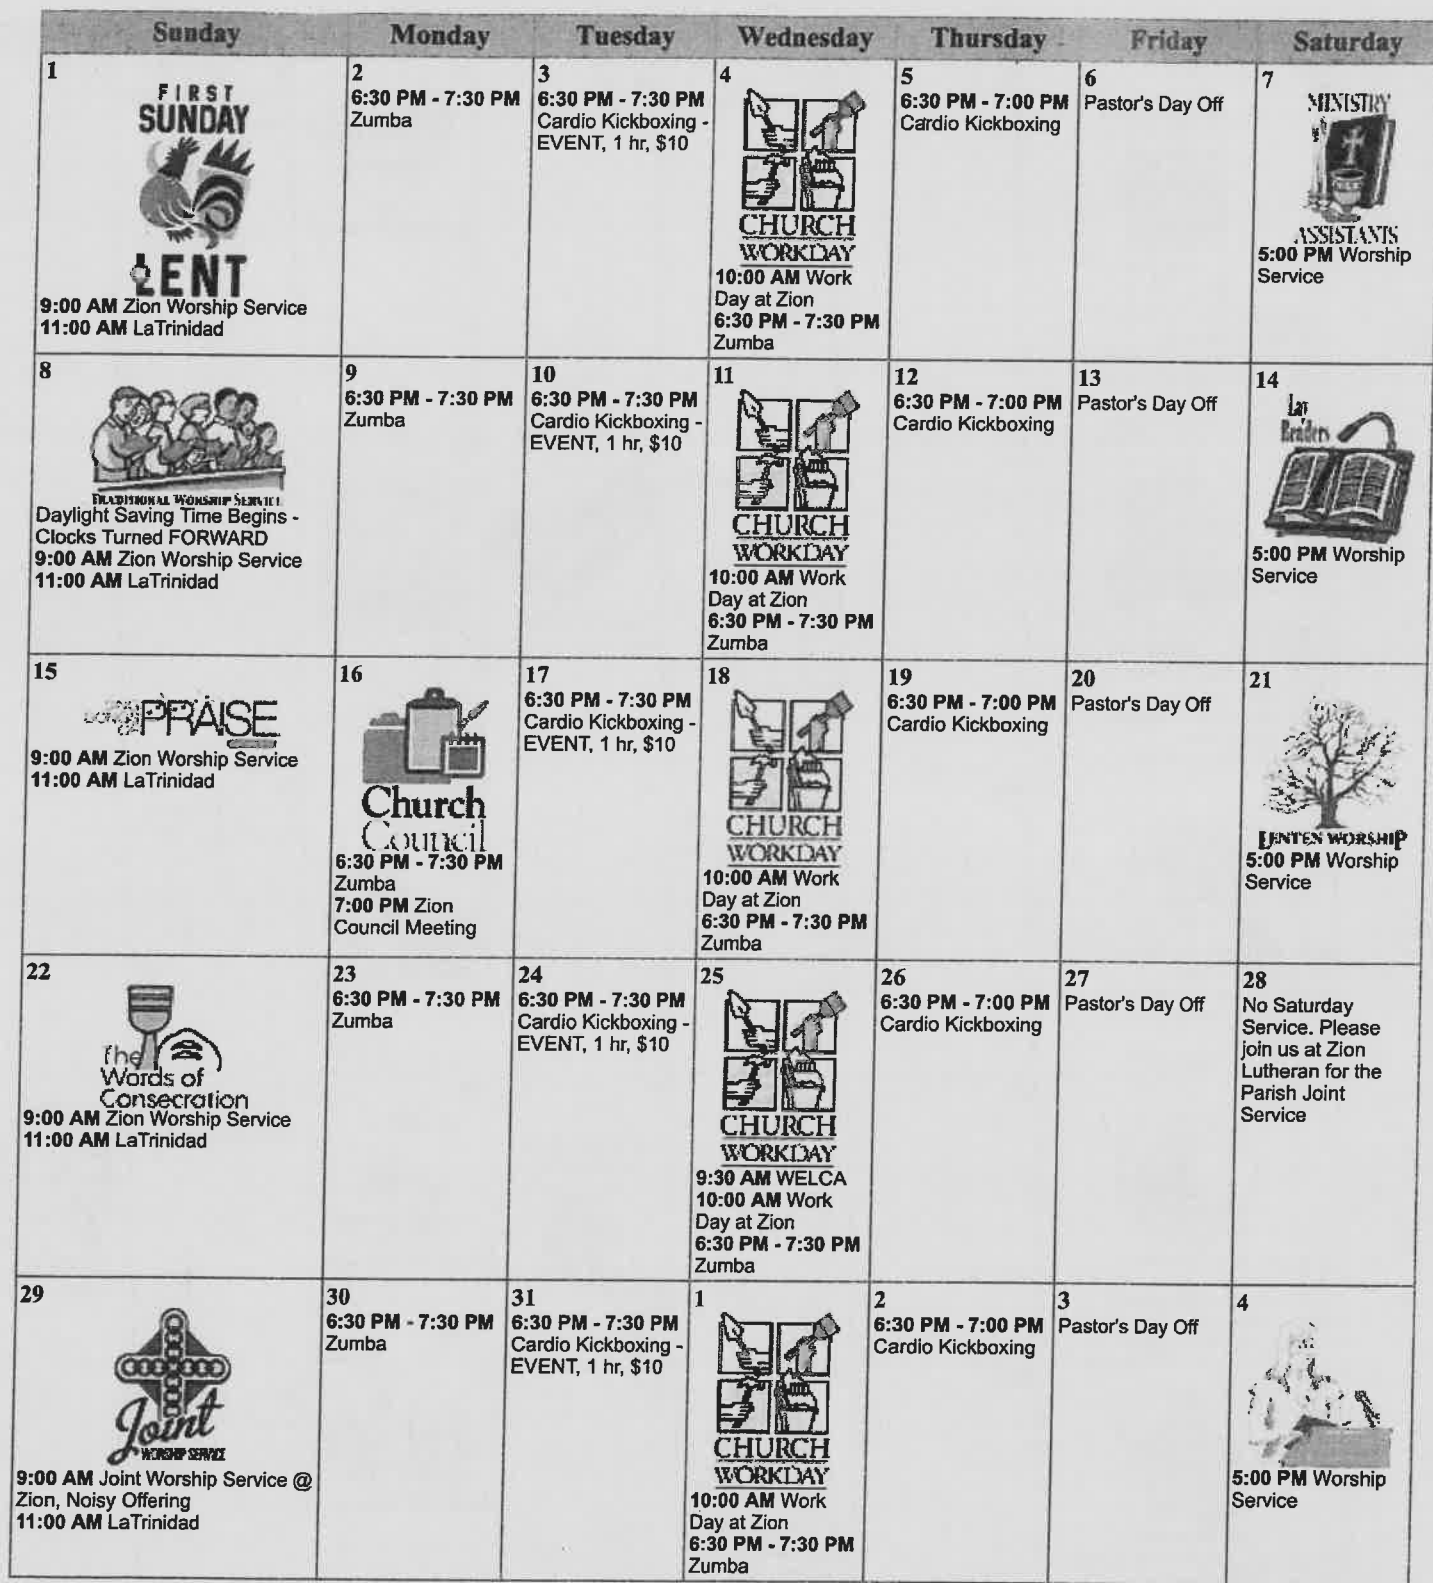 Sunday Monday Tuesday Wednesday Thursday Friday Saturday
1
FIRST
SUNDAY
LENT
9:00 AM Zion Worship Service
11:00 AM LaTrinidad
2
6:30 PM - 7:30 PM
Zumba
3
6:30 PM - 7:30 PM
Cardio Kickboxing -
EVENT, 1 hr, $10
4
CHURCH
WORKDAY
10:00 AM Work
Day at Zion
6:30 PM - 7:30 PM
Zumba
5
6:30 PM - 7:00 PM
Cardio Kickboxing
6
Pastor's Day Off
7
MINISTRY
ASSISTANTS
5:00 PM Worship
Service
8
TRADITIONAL WORSHIP SERVICE
Daylight Saving Time Begins -
Clocks Turned FORWARD
9:00 AM Zion Worship Service
11:00 AM LaTrinidad
9
6:30 PM - 7:30 PM
Zumba
10
6:30 PM - 7:30 PM
Cardio Kickboxing -
EVENT, 1 hr, $10
11
CHURCH
WORKDAY
10:00 AM Work
Day at Zion
6:30 PM - 7:30 PM
Zumba
12
6:30 PM - 7:00 PM
Cardio Kickboxing
13
Pastor's Day Off
14
Lay
Readers
5:00 PM Worship
Service
15
PRAISE
9:00 AM Zion Worship Service
11:00 AM LaTrinidad
16
Church
Council
6:30 PM - 7:30 PM
Zumba
7:00 PM Zion
Council Meeting
17
6:30 PM - 7:30 PM
Cardio Kickboxing -
EVENT, 1 hr, $10
18
CHURCH
WORKDAY
10:00 AM Work
Day at Zion
6:30 PM - 7:30 PM
Zumba
19
6:30 PM - 7:00 PM
Cardio Kickboxing
20
Pastor's Day Off
21
LENTEN WORSHIP
5:00 PM Worship
Service
22
The
Words of
Consecration
9:00 AM Zion Worship Service
11:00 AM LaTrinidad
23
6:30 PM - 7:30 PM
Zumba
24
6:30 PM - 7:30 PM
Cardio Kickboxing -
EVENT, 1 hr, $10
25
CHURCH
WORKDAY
9:30 AM WELCA
10:00 AM Work
Day at Zion
6:30 PM - 7:30 PM
Zumba
26
6:30 PM - 7:00 PM
Cardio Kickboxing
27
Pastor's Day Off
28
No Saturday
Service. Please
join us at Zion
Lutheran for the
Parish Joint
Service
29
Joint
WORSHIP SERVICE
9:00 AM Joint Worship Service @
Zion, Noisy Offering
11:00 AM LaTrinidad
30
6:30 PM - 7:30 PM
Zumba
31
6:30 PM - 7:30 PM
Cardio Kickboxing -
EVENT, 1 hr, $10
1
CHURCH
WORKDAY
10:00 AM Work
Day at Zion
6:30 PM - 7:30 PM
Zumba
2
6:30 PM - 7:00 PM
Cardio Kickboxing
3
Pastor's Day Off
4
5:00 PM Worship
Service